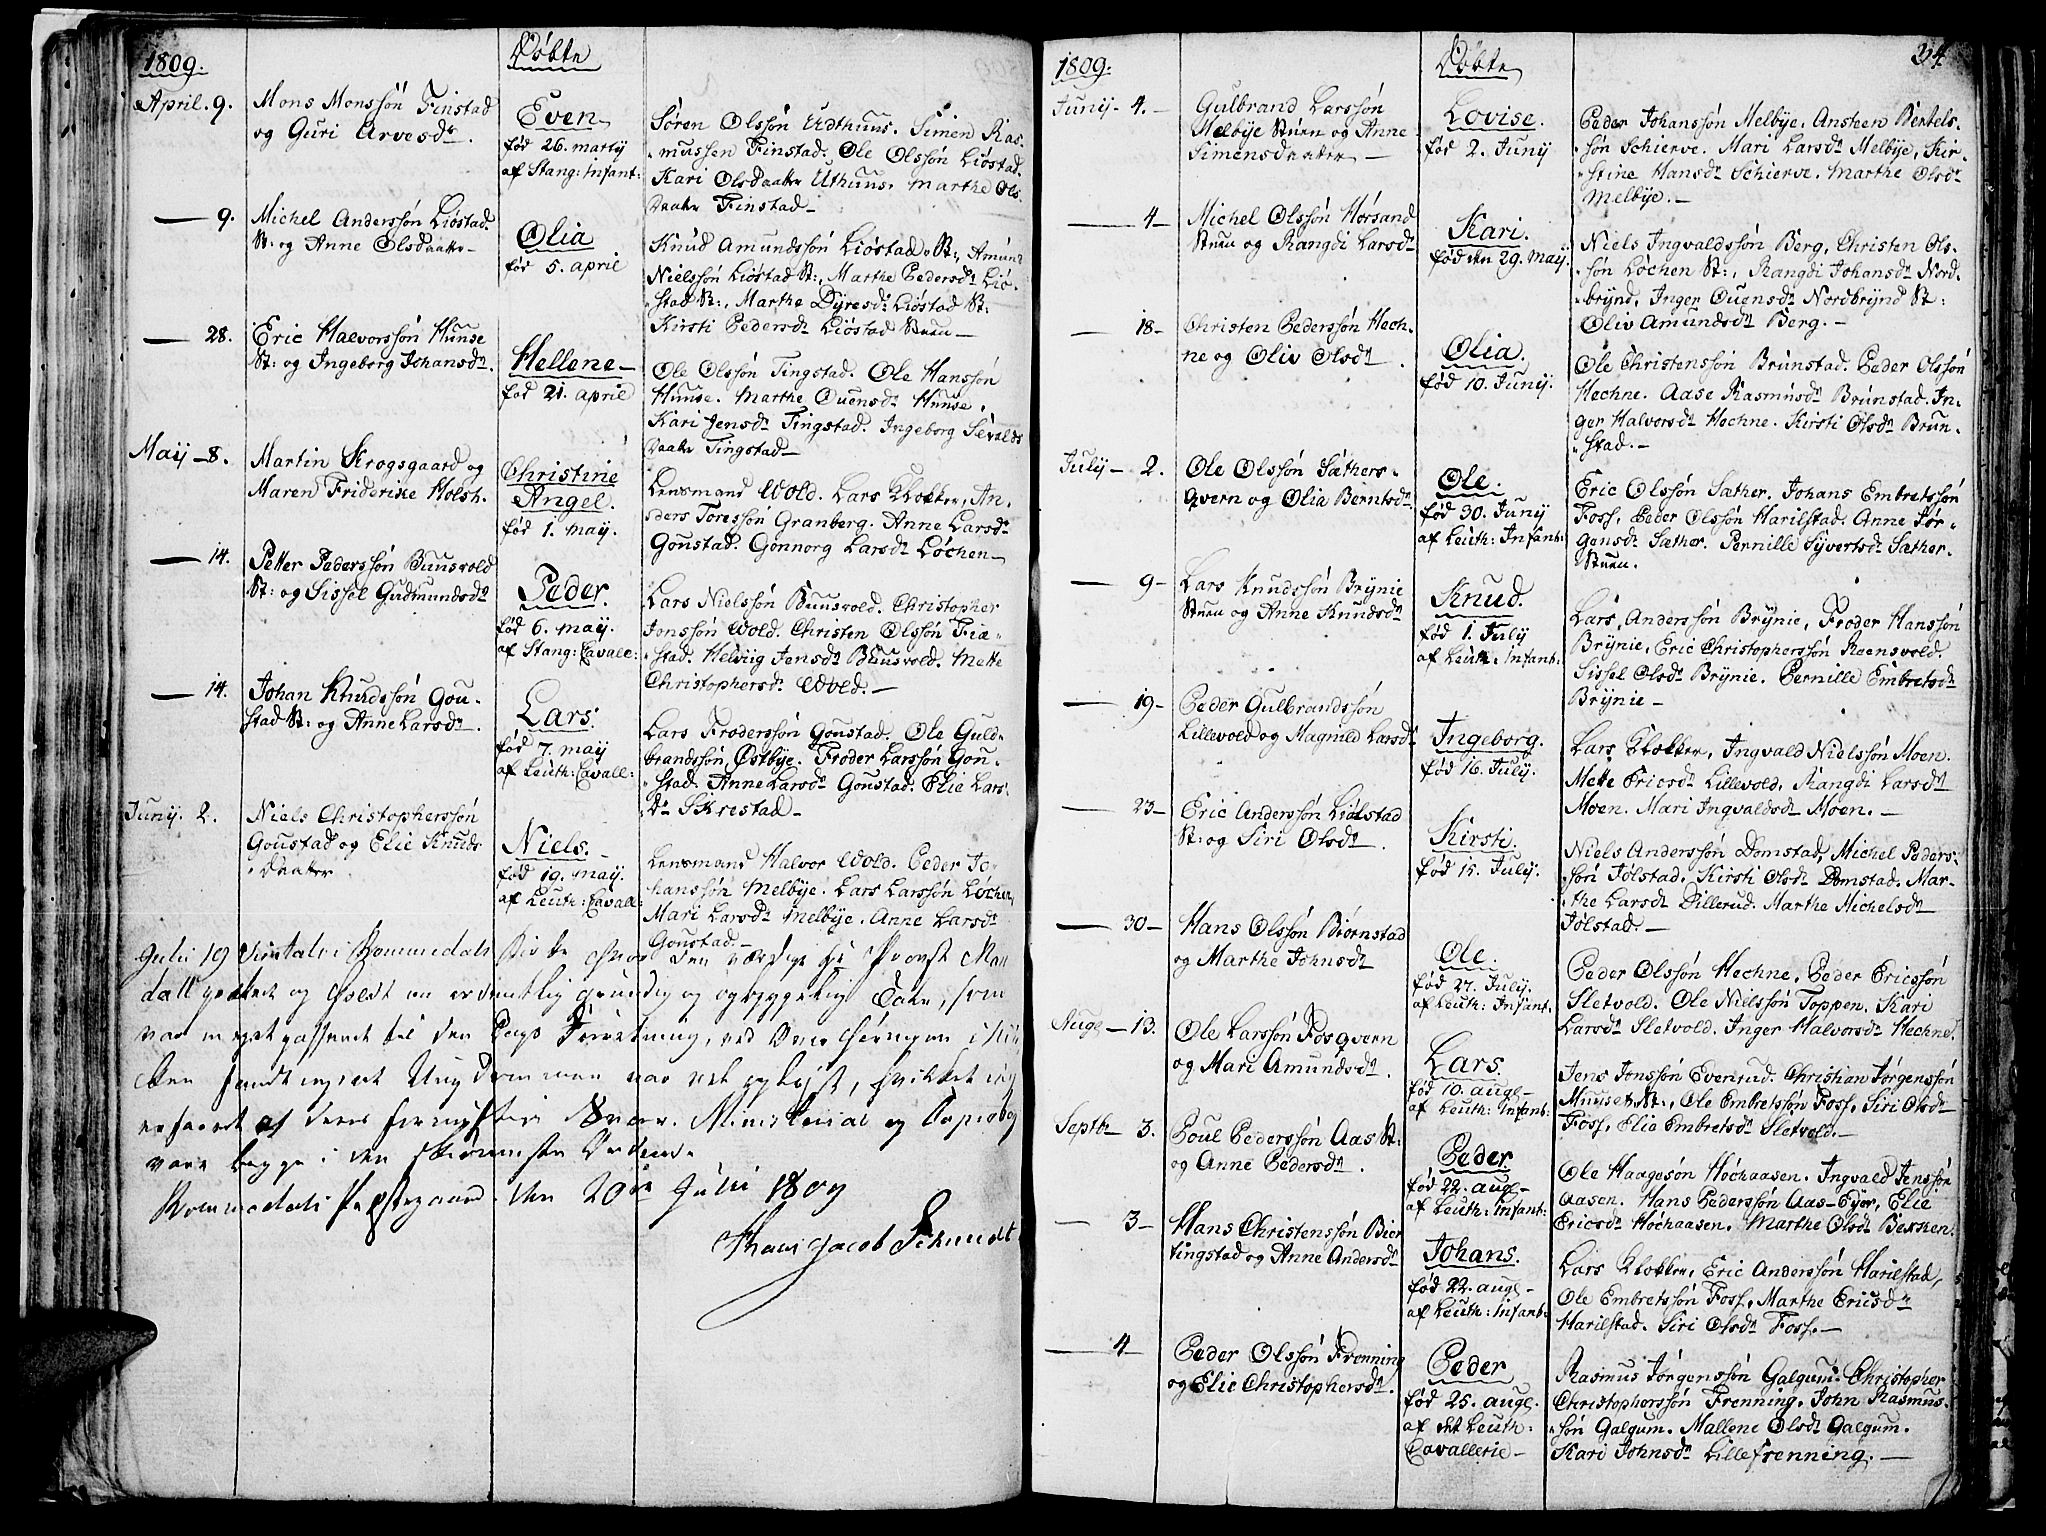 1809.
Døbte
April. 9.
Mons Monssön Finstad
og Guri Arvesdr.
Even
fød 26. martij
af Stang: Infant:
Søren Olssön Udthuus. Simen Ras-
mussen Finstad. Ole Olssön Liöstad.
Kari Olsdaatter Uthuus. Marthe Ols
daatr Finstad
9.
Michel Anderssön Liöstad
St: og Anne Olsdaatter
Olia
fød 5. april
Knud Amundssön Liöstad St:, Amund
Nielssön Liöstad St:, Marthe Pedersdr Liö-
stad St:, Marthe Dyresdr Liöstad St:
Kirsti Pedersdr Liöstad Stuen
28.
Eric Halvorssön Hunse
St: og Ingeborg Johansdr.
Hellene
fød 21. april
Ole Olssön Tingstad. Ole Hanssön
Hunse. Marthe Ouensdr Hunse.
Kari Jensdr Tingstad. Ingeborg Sevalds
daatr Tingstad
Maij 8.
Martin Krogsgaard og
Maren Friderike Holst.
Christine
Angel.
fød 1. maij.
Lensmand Wold. Lars Klokker, An-
ders Toressön Granberg. Anne Larsdr
Goustad. Gonnorg Larsdr Löchen
14.
Petter Pederssön Buusvold
St: og Sissel Gudmundsdr
Peder.
fød 6. maij.
af Stang: Cavale:
Lars Nielssön Buusvold. Christopher
Jonssön Wold. Christen Olssön Fiæ-
stad. Helviig Jensdr Buusvold. Mette
Christophersdr Wold.
14.
Johan Knudssön Gou-
stad St: og Anne Larsdr.
Lars.
fød 7. maij
af Leuth: Cavall:
Lars Froderssön Goustad. Ole Guld-
brandssön Østbye. Froder Larssön Gou-
stad. Anne Larsdr Goustad. Elie Lars
dr Skrestad
Junij. 2.
Niels Christopherssön
Goustad og Elie Knuds
daatter
Niels.
fød 19. maij.
af Leuth: Cavall:
Lensmand Halvor Wold. Peder Jo-
hanssön Melbye. Lars Larssön Löchen,
Mari Larsdr Melbye. Anne Larsdr
Goustad.
Julii 19 Visitatz i Rommedals Kirke hvor den værdige Hr Provst
og holdt en ordentlig grundig og opbyggelig Tale, som
var meget passende til den Dags Forretning, ved
Ungdommen var vel oplyst, hvilket jeg
erfarede af deres fornuftige Svar. Ministerial og Copiebog
vare begge i den skiønneste Orden.
Rommedals Præstegaard den 20de Julii 1809
Hans Jacob Schmidt
1809.
Døbte
24
Junij 4.
Gulbrand Larssön
Melbye Stuen og Anne
Simensdaatter
Lovise.
fød 2. Junij
Peder Johanssön Melbye, Ansteen Bertels-
sön Schierve. Mari Larsdr Melbye, Kir-
stine Hansdr Schierve. Marthe Olsdr
Melbye.
4
Michel Olssön Horsand
Stuen og Rangdi Larsdr
Kari.
fød den 29. maij.
Niels Ingvaldssön Berg, Christen Ols-
sön Löchen St:, Rangdi Johansdr Nord-
brynd, Inger Ouensdr Nordbrynd St:
Oliv Amundsdr Berg.
18
Christen Pederssön Hech-
ne og Oliv Olsdr.
Olia.
fød 10. Junij.
Ole Christenssön Brunstad. Peder Olssön
Hechne. Aase Rasmusdr Brunstad. In-
ger Halvorsdr Hechne. Kirsti Olsdr Brun-
stad.
Julij 2.
Ole Olssön Sæthers-
qvern og Olia Berntsdr
Ole.
fød 30. Junij
af Leuth: Infant:
Eric Olssön Sæther. Johans Embretssön
Foss, Peder Olssön Harilstad. Anne Jør-
gensdr Sæther. Pernille Syvertsdr Sæther-
Stuen.
9
Lars Knudssön Brynie
Stuen og Anne Knudsdr
Knud.
fød 1. Julij
af Leuth: Infant:
Lars Anderssön Brynie, Froder Hanssön
Brynie, Eric Christopherssön Roensvold.
Sissel Olsdr Brynie. Pernille Embretsdr
Brynie
19
Peder Gulbrandssön
Lillevold og Magnild Larsdr
Ingeborg.
fød 16. Julij.
Lars Klokker, Ingvald Nielssön Moen.
Mette Ericsdr Lillevold, Rangdi Larsdr
Moen. Mari Ingvaldsdr Moen.
23
Eric Anderssön Liölstad
St: og Siri Olsdr.
Kirsti.
fød 15. Julij.
Niels Anderssön Domstad, Michel Peders-
sön Jölstad, Kirsti Olsdr Domstad. Mar-
the Larsdr Dillerud. Marthe Michelsdr
Jölstad.
30
Hans Olssön Biörnstad
og Marthe Johnsdr
Ole.
fød 27. Julij.
af Leuth: Infant.
Peder Olssön Hechne, Peder Ericssön
Sletvold. Ole Nielssön Toppen. Kari
Larsdr Sletvold. Inger Halvorsdr Hechne.
Augl 13.
Ole Larssön Fosqvern
og Mari Amundsdr.
Lars.
fød 10. augl
af Leuth: Infant:
Jens Jonssön Evenrud. Christian Jørgenssön
Muuset St:, Ole Embretssön Foss, Siri Olsdr
Foss, Elie Embretsdr Sletvold.
Septbr 3.
Poul Pederssön Aas St:
og Anne Pedersdr.
Peder
fød 22. augl
af Leuth: Infant:
Ole Haagesön Höchaasen. Ingvald Jenssön
Aasen. Hans Pederssön Aas-Eyer, Elie
Ericsdr Höchaasen. Marthe Olsdr Bexken.
3
Hans Christenssön Bier
tingstad og Anne Andersdr
Johans.
fød 22. augl
af Leuth: Infant:
Lars Klokker, Eric Anderssön Harilstad,
Ole Embretssön Foss, Marthe Ericsdr
Harilstad. Siri Olsdr Foss.
4
Peder Olssön Frenning
og Elie Christophersdr.
Peder
fød 25. augl.
af det Leuth:
Cavallerie
Rasmus Jørgenssön Galgum. Christopher
Christopherssön Frenning, John Rasmus-
sön Galgum. Mallene Olsdr Galgum.
Kari Johnsdr Lillefrenning.